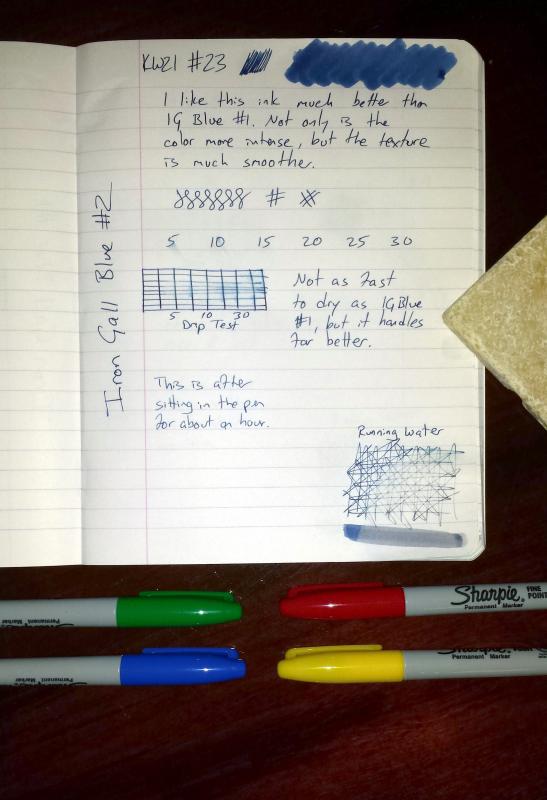 KWZI #23
I like this ink much better than
IG Blue #1. Not only is the
color more intense, but the texture
is much smoother.
#
5 10 15 20 25 30
Iron Gall Blue #2
5 10 30
Drip Test
Not as fast
to dry as IG Blue
#1, but it handles
far better.
This is after
sitting in the pen
for about an hour.
Running Water
Sharpie® FINE POINT
Permanent Marker
Permanent Marker
Permanent Marker
Permanent Marker